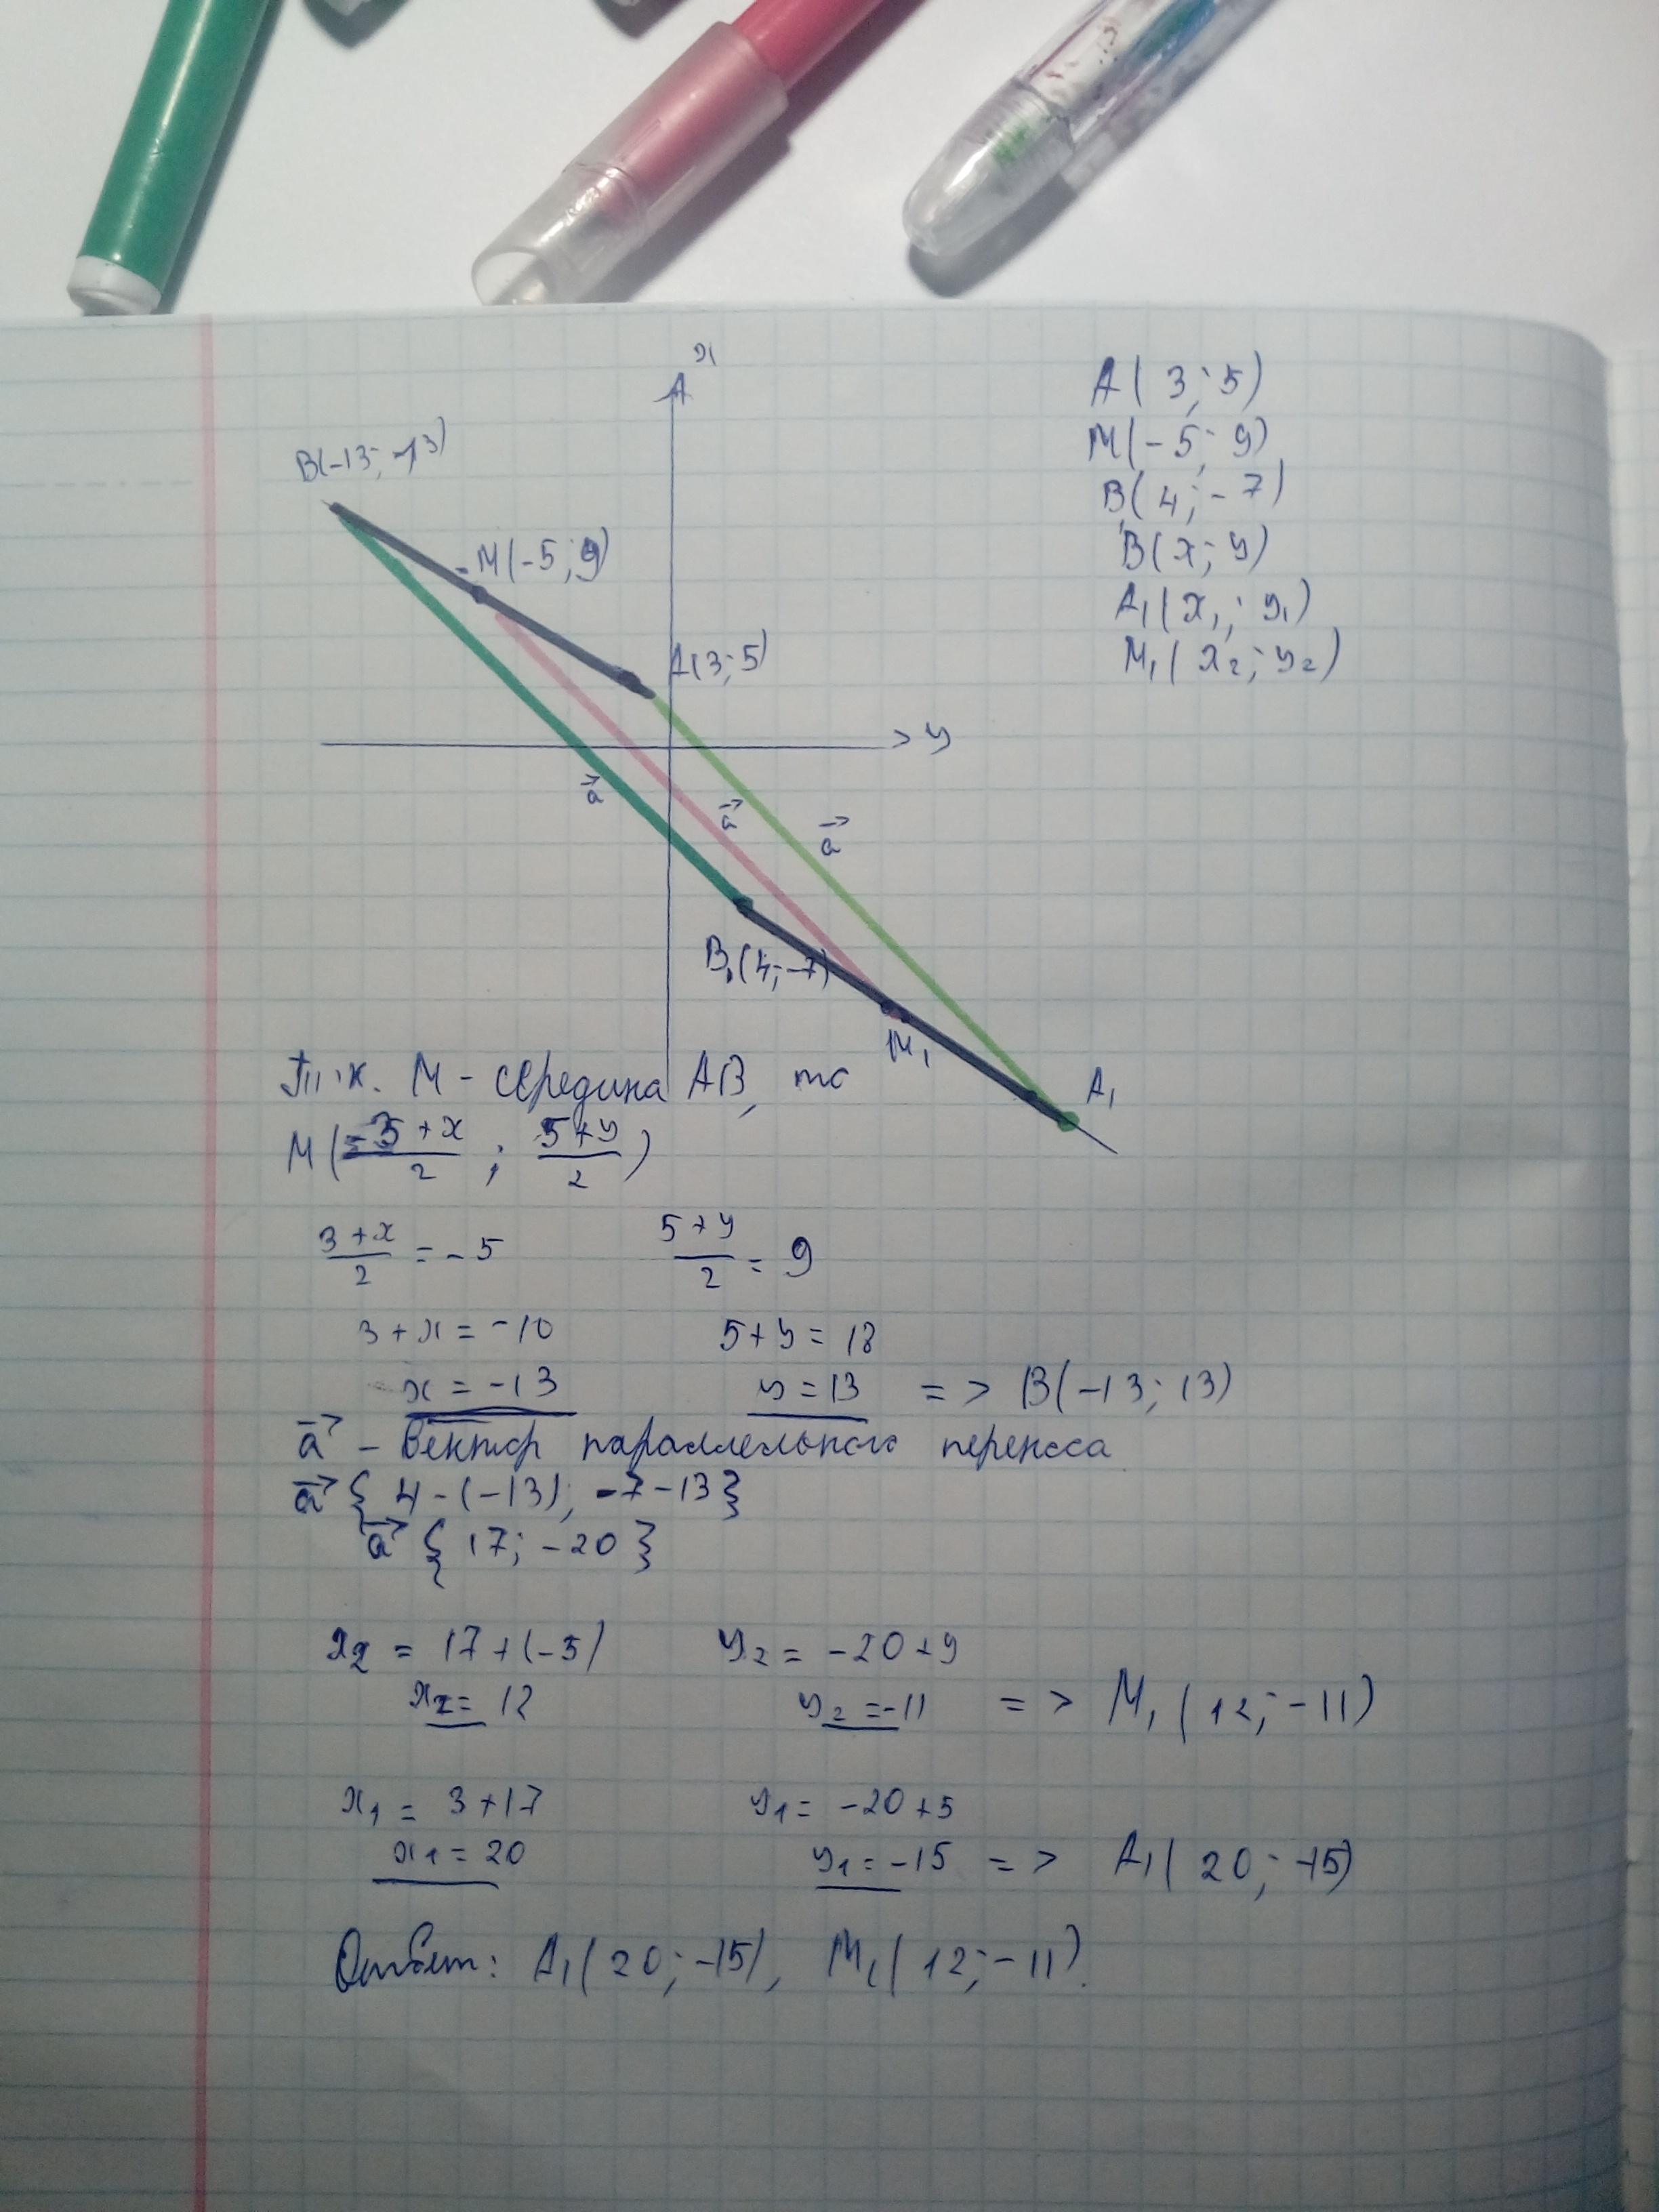 х
A(3; 5)
M(-5; 9)
B(4; -7)
B(x; y)
A₁(x₁; y₁)
M₁(x₂; y₂)
B(-13; 13)
M(-5; 9)
A(3; 5)
> y
a⃗ a⃗ a⃗
B₁(4; -7)
M₁
A₁
Т.к. M - середина AB, то
M(3+x/2 ; 5+y/2)
3+x/2 = -5 5+y/2 = 9
3+x = -10 5+y = 18
x = -13 y = 13 => B(-13; 13)
a⃗ - вектор параллельного переноса
a⃗ { 4-(-13); -7-13}
a⃗ { 17; -20}
x₂ = 17+(-5) y₂ = -20+9
x₂ = 12 y₂ = -11 => M₁(12; -11)
x₁ = 3+17 y₁ = -20+5
x₁ = 20 y₁ = -15 => A₁(20; -15)
Ответ: A₁(20; -15), M₁(12; -11).